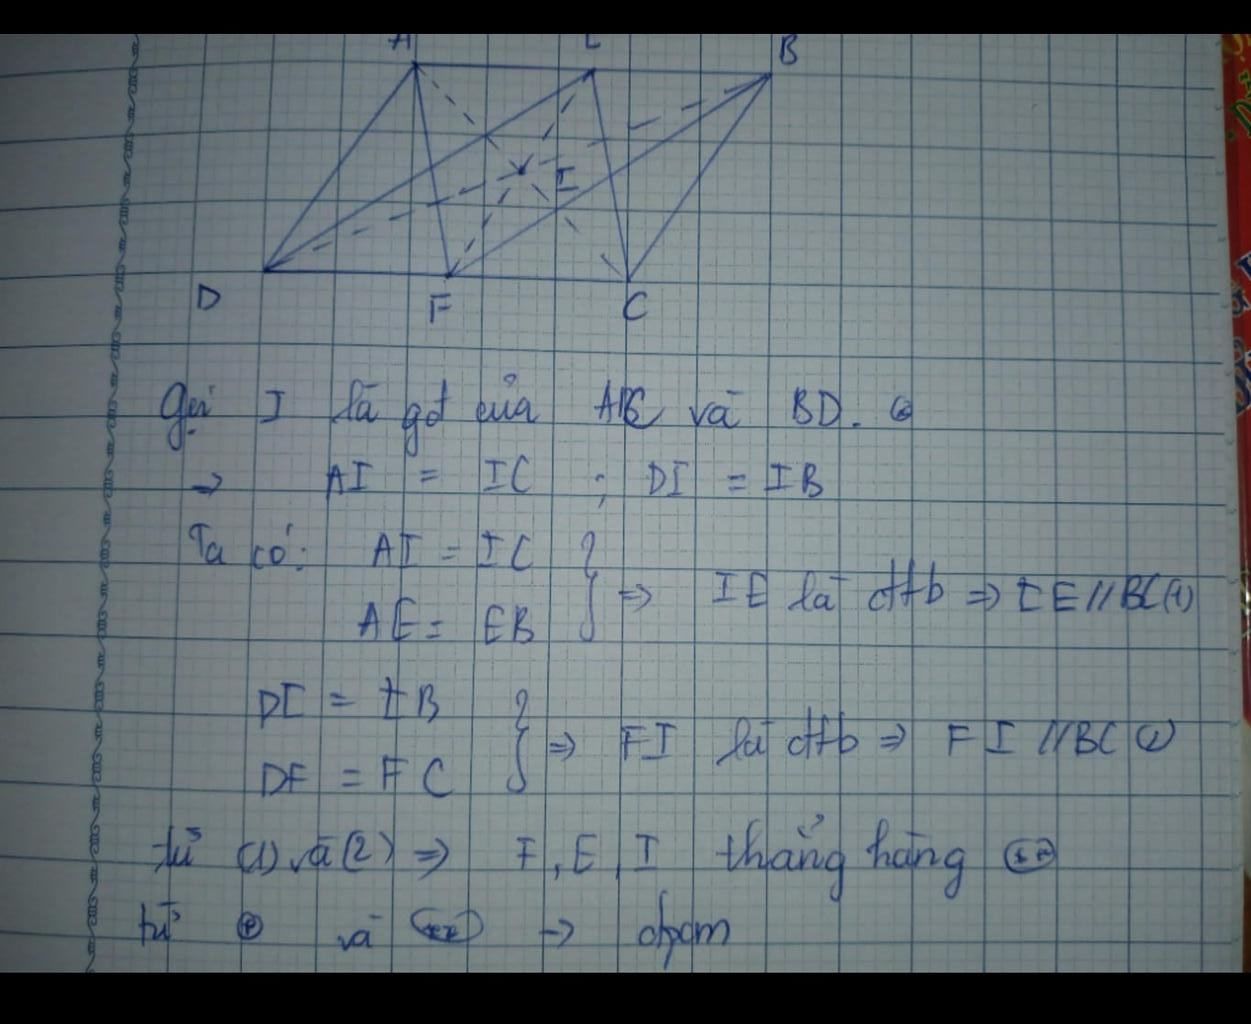 A E B
I
D F C
Gọi I là gđ của AC và BD. (*)
=> AI = IC ; DI = IB
Ta có: AI = IC
AE = EB } => IE là đtb => IE // BC (1)
DI = IB
DF = FC } => FI là đtb => FI // BC (2)
từ (1) và (2) => F, E, I thẳng hàng (**)
từ (*) và (**) -> đpcm